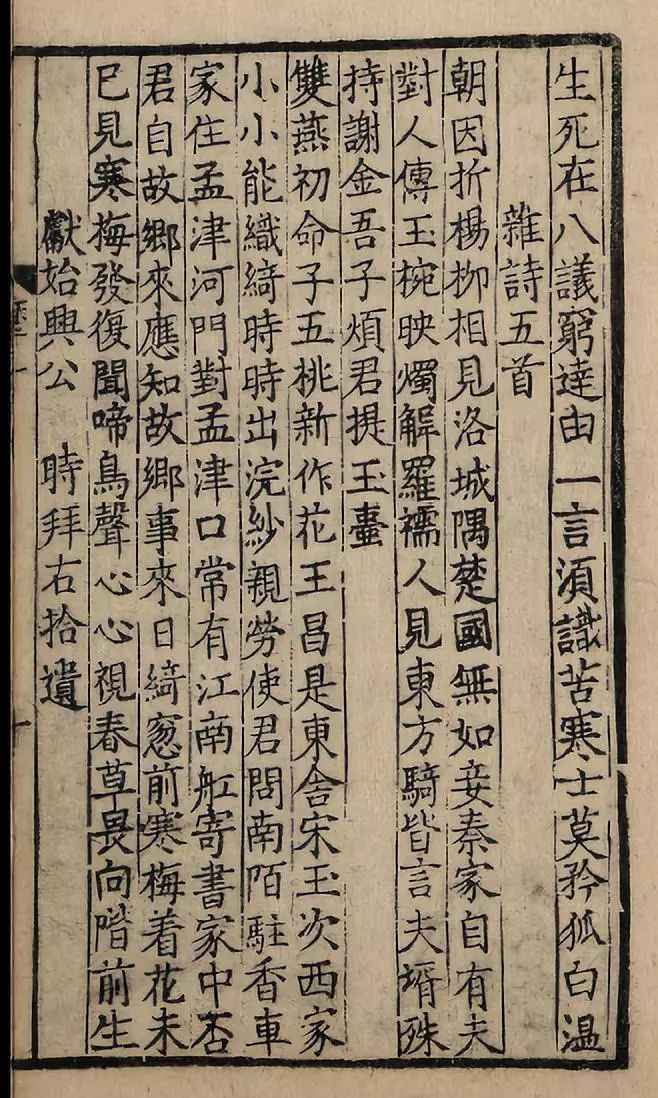 生死在八議窮達由一言須識苦寒士莫矜狐白温
雜詩五首
朝因折楊柳相見洛城隅楚國無如妾秦家自有夫
對人傳玉椀映燭解羅襦人見東方騎皆言夫壻殊
持謝金吾子煩君提玉壷
雙燕初命子五桃新作花王昌是東舍宋玉次西家
小小能織綺時時出浣紗親勞使君問南陌駐香車
家住孟津河門對孟津口常有江南舡寄書家中否
君自故鄉來應知故鄉事來日綺窓前寒梅着花未
已見寒梅發復聞啼鳥聲心心視春草畏向階前生
獻始興公 時拜右拾遺
十